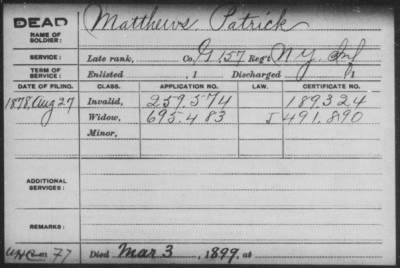 DEAD
NAME OF SOLDIER: Matthews Patrick
SERVICE: Late rank, Co. G 157 Reg't N.Y. Inf
TERM OF SERVICE: Enlisted , 1 Discharged , 1
DATE OF FILING. CLASS. APPLICATION NO. LAW. CERTIFICATE NO.
1878, Aug 27 Invalid, 259.574 189.324
Widow, 695.483 5 491.890
Minor,
ADDITIONAL SERVICES:
REMARKS:
77 Died Mar 3, 1899, at